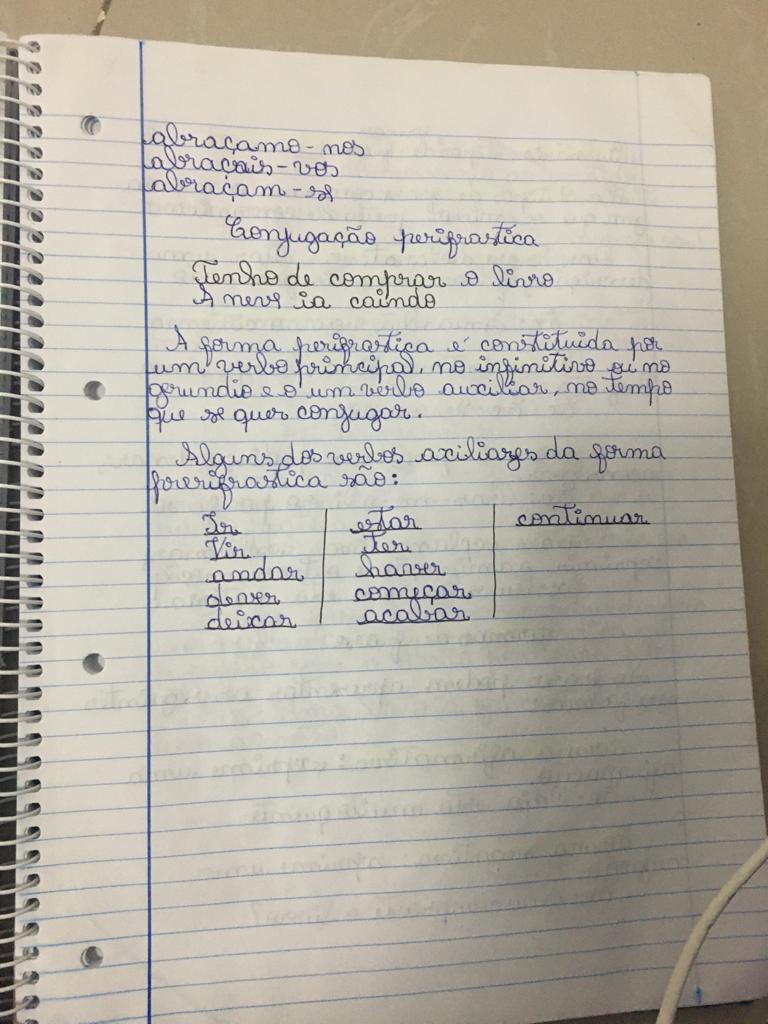 abraçamo-nos
abraçais-vos
abraçam-se
Conjugação perifrastica
Tenho de comprar o livro
A neve ia caindo
A forma perifrastica é constituida por
um verbo principal, no infinitivo ou no
gerundio e o um verbo auxiliar, no tempo
que se quer conjugar.
Alguns dos verbos axiliares da forma
prerifrastica são:
Ir estar continuar
Vir ter
andar haver
dever começar
deixar acabar